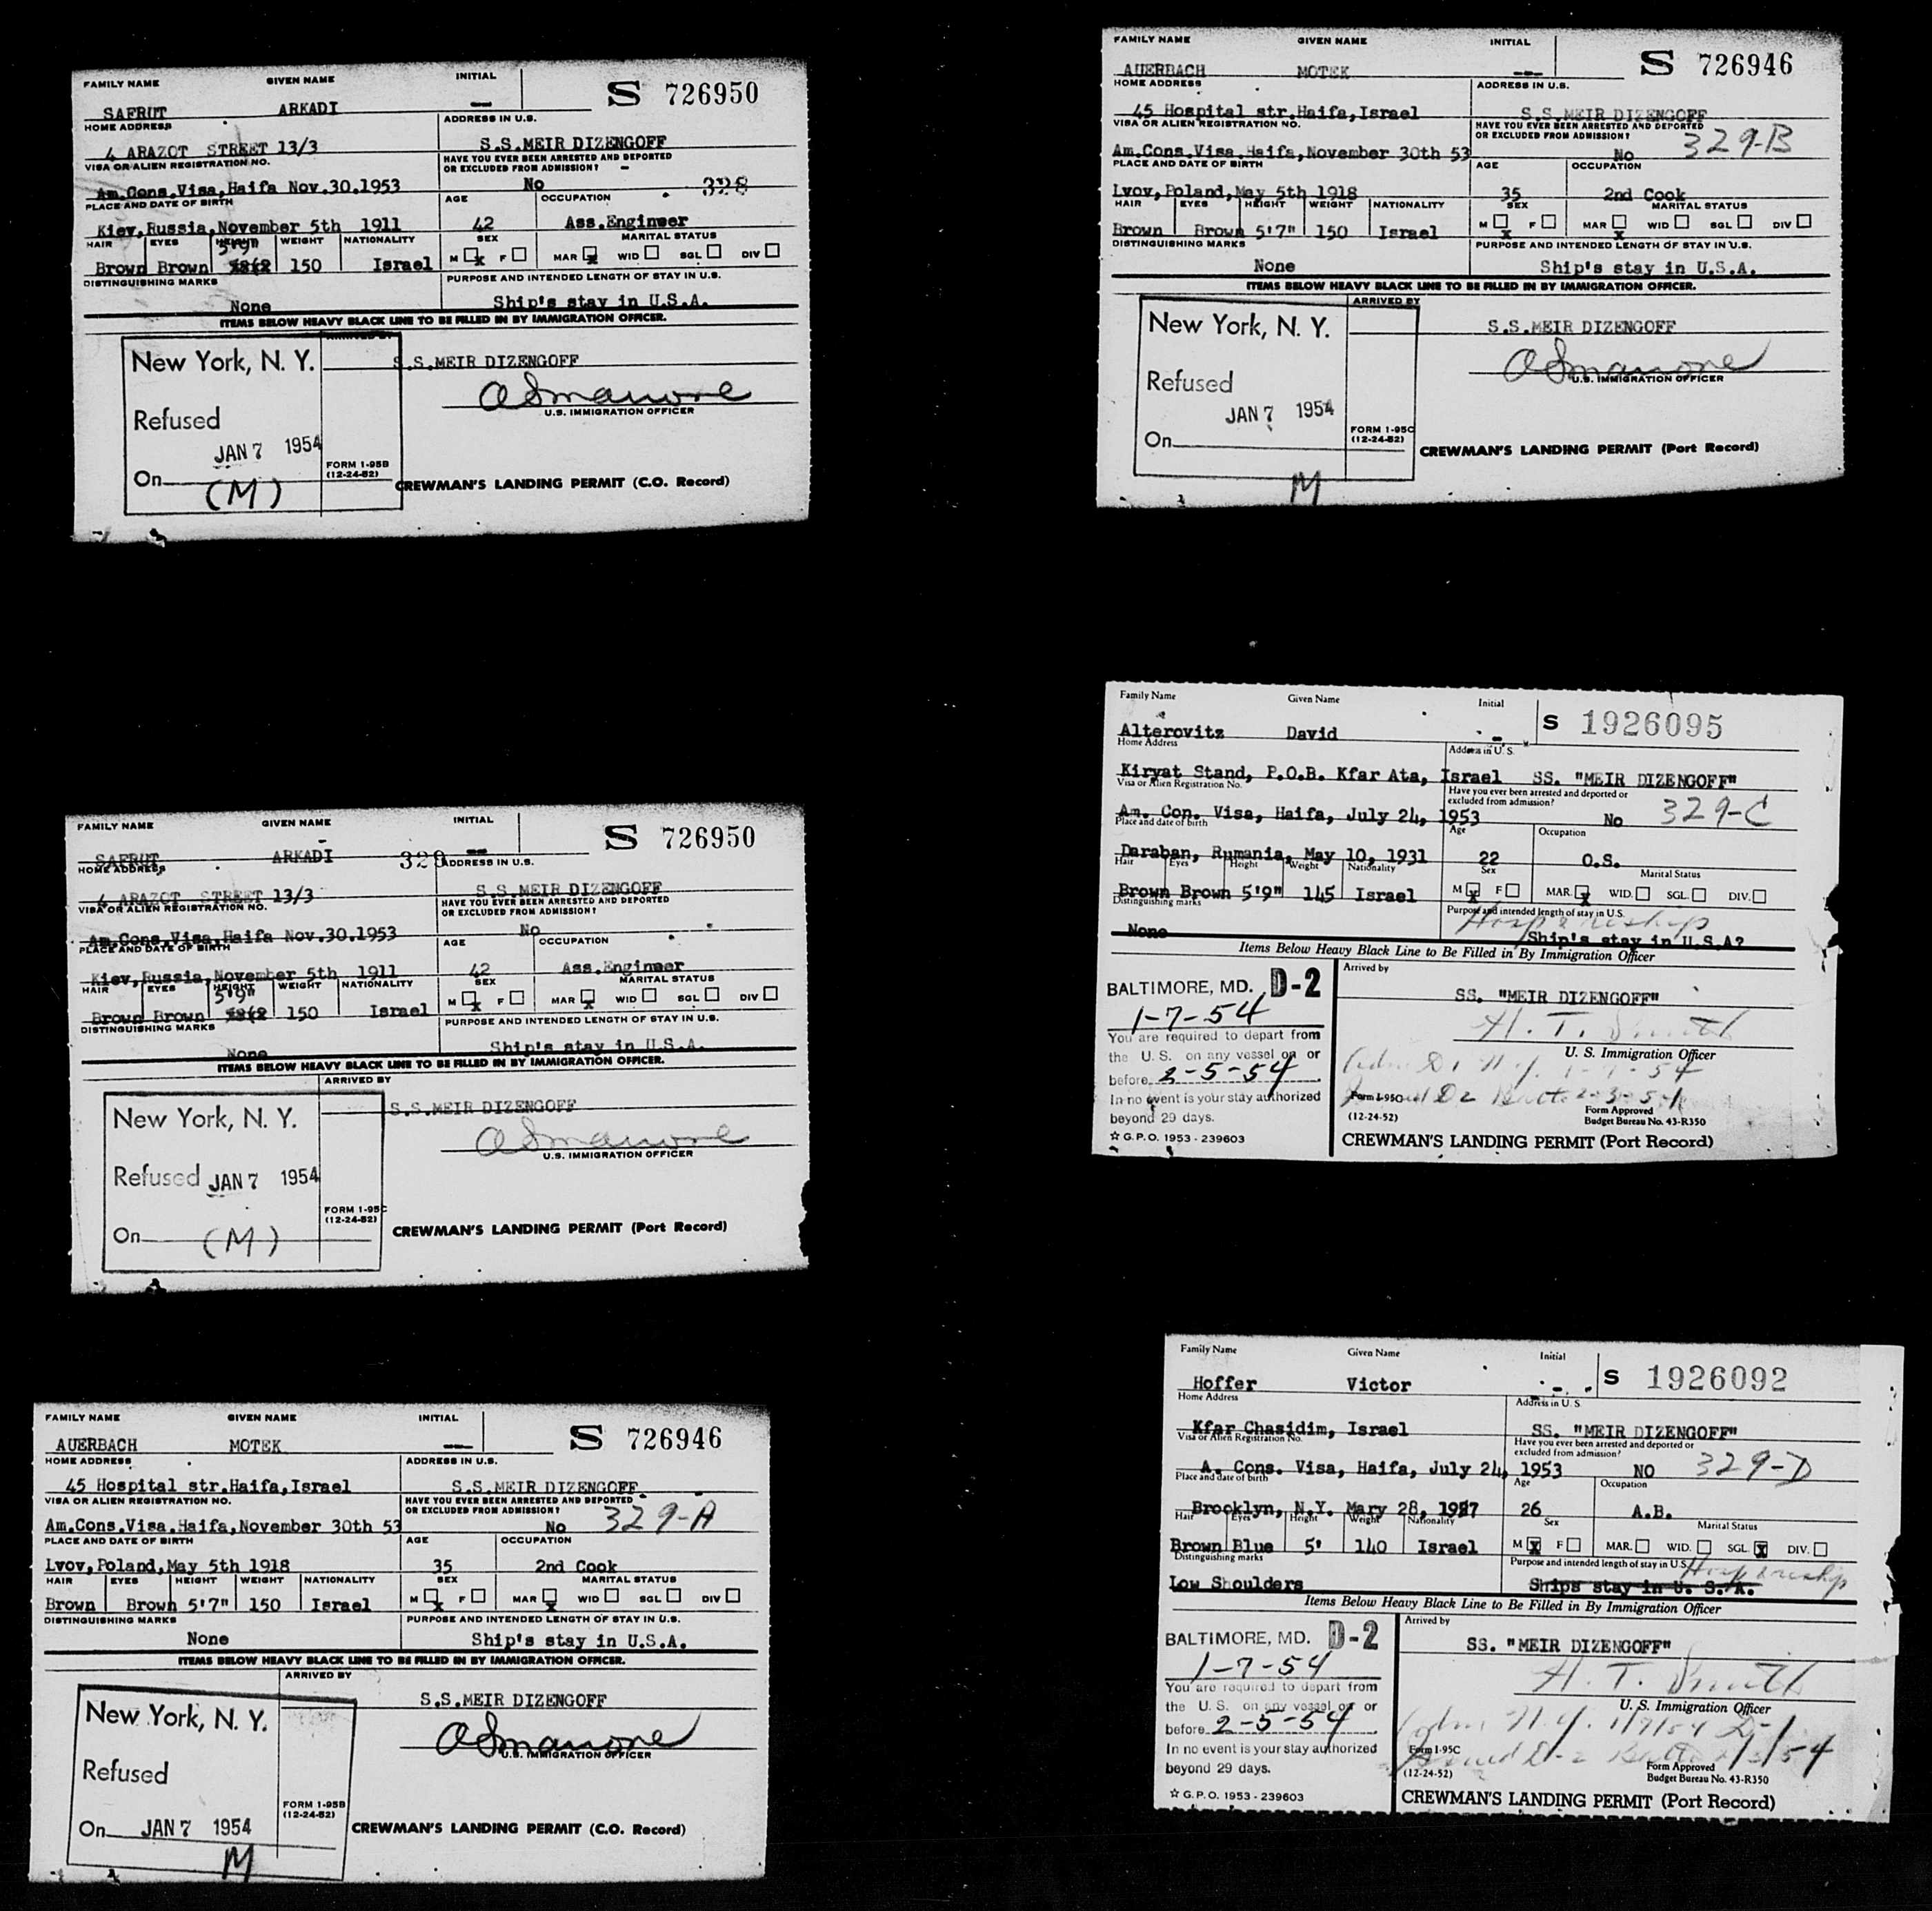 FAMILY NAME GIVEN NAME INITIAL
S 726950
SAFRUT ARKADI —
HOME ADDRESS ADDRESS IN U.S.
4 ARAZOT STREET 13/3 S.S.MEIR DIZENGOFF
VISA OR ALIEN REGISTRATION NO. HAVE YOU EVER BEEN ARRESTED AND DEPORTED
OR EXCLUDED FROM ADMISSION?
Am.Cons.Visa,Haifa Nov.30.1953 No 328
PLACE AND DATE OF BIRTH AGE OCCUPATION
Kiev,Russia,November 5th 1911 42 Ass.Engineer
HAIR EYES HEIGHT WEIGHT NATIONALITY SEX MARITAL STATUS
5'9"
Brown Brown 150 Israel M x F MAR x WID SGL DIV
DISTINGUISHING MARKS PURPOSE AND INTENDED LENGTH OF STAY IN U.S.
None Ship's stay in U.S.A.
ITEMS BELOW HEAVY BLACK LINE TO BE FILLED IN BY IMMIGRATION OFFICER.
ARRIVED BY
New York, N. Y. S.S.MEIR DIZENGOFF
U.S. IMMIGRATION OFFICER
Refused
JAN 7 1954
FORM 1-95B
(12-24-52)
On (M)
CREWMAN'S LANDING PERMIT (C.O. Record)
FAMILY NAME GIVEN NAME INITIAL
S 726950
SAFRUT ARKADI — 329
HOME ADDRESS ADDRESS IN U.S.
4 ARAZOT STREET 13/3 S.S.MEIR DIZENGOFF
VISA OR ALIEN REGISTRATION NO. HAVE YOU EVER BEEN ARRESTED AND DEPORTED
OR EXCLUDED FROM ADMISSION?
Am.Cons.Visa,Haifa Nov.30.1953 No
PLACE AND DATE OF BIRTH AGE OCCUPATION
Kiev,Russia,November 5th 1911 42 Ass.Engineer
HAIR EYES HEIGHT WEIGHT NATIONALITY SEX MARITAL STATUS
5'9"
Brown Brown 150 Israel M x F MAR x WID SGL DIV
DISTINGUISHING MARKS PURPOSE AND INTENDED LENGTH OF STAY IN U.S.
None Ship's stay in U.S.A.
ITEMS BELOW HEAVY BLACK LINE TO BE FILLED IN BY IMMIGRATION OFFICER.
ARRIVED BY
New York, N. Y. S.S.MEIR DIZENGOFF
U.S. IMMIGRATION OFFICER
Refused JAN 7 1954
FORM 1-95C
(12-24-52)
On (M)
CREWMAN'S LANDING PERMIT (Port Record)
FAMILY NAME GIVEN NAME INITIAL
S 726946
AUERBACH MOTEK —
HOME ADDRESS ADDRESS IN U.S.
45 Hospital str.Haifa,Israel S.S.MEIR DIZENGOFF
VISA OR ALIEN REGISTRATION NO. HAVE YOU EVER BEEN ARRESTED AND DEPORTED
OR EXCLUDED FROM ADMISSION?
Am.Cons.Visa.Haifa,November 30th 53 No 329-A
PLACE AND DATE OF BIRTH AGE OCCUPATION
Lvov,Poland,May 5th 1918 35 2nd Cook
HAIR EYES HEIGHT WEIGHT NATIONALITY SEX MARITAL STATUS
Brown Brown 5'7" 150 Israel M x F MAR x WID SGL DIV
DISTINGUISHING MARKS PURPOSE AND INTENDED LENGTH OF STAY IN U.S.
None Ship's stay in U.S.A.
ITEMS BELOW HEAVY BLACK LINE TO BE FILLED IN BY IMMIGRATION OFFICER.
ARRIVED BY
New York, N. Y. S.S.MEIR DIZENGOFF
U.S. IMMIGRATION OFFICER
Refused
FORM 1-95B
(12-24-52)
On JAN 7 1954
M
CREWMAN'S LANDING PERMIT (C.O. Record)
FAMILY NAME GIVEN NAME INITIAL
S 726946
AUERBACH MOTEK —
HOME ADDRESS ADDRESS IN U.S.
45 Hospital str.Haifa,Israel S.S.MEIR DIZENGOFF
VISA OR ALIEN REGISTRATION NO. HAVE YOU EVER BEEN ARRESTED AND DEPORTED
OR EXCLUDED FROM ADMISSION?
Am.Cons.Visa.Haifa,November 30th 53 No 329-B
PLACE AND DATE OF BIRTH AGE OCCUPATION
Lvov,Poland,May 5th 1918 35 2nd Cook
HAIR EYES HEIGHT WEIGHT NATIONALITY SEX MARITAL STATUS
Brown Brown 5'7" 150 Israel M x F MAR x WID SGL DIV
DISTINGUISHING MARKS PURPOSE AND INTENDED LENGTH OF STAY IN U.S.
None Ship's stay in U.S.A.
ITEMS BELOW HEAVY BLACK LINE TO BE FILLED IN BY IMMIGRATION OFFICER.
ARRIVED BY
New York, N. Y. S.S.MEIR DIZENGOFF
U.S. IMMIGRATION OFFICER
Refused
JAN 7 1954
FORM 1-95C
(12-24-52)
On
M
CREWMAN'S LANDING PERMIT (Port Record)
Family Name Given Name Initial
S 1926095
Alterovitz David -
Home Address Address in U. S.
Kiryat Stand, P.O.B. Kfar Ata, Israel SS. "MEIR DIZENGOFF"
Visa or Alien Registration No. Have you ever been arrested and deported or
excluded from admission?
Am. Con. Visa, Haifa, July 24, 1953 No 329-C
Place and date of birth Age Occupation
Daraban, Rumania, May 10, 1931 22 O.S.
Hair Eyes Height Weight Nationality Sex Marital Status
Brown Brown 5'9" 145 Israel M x F MAR. x WID. SGL. DIV.
Distinguishing marks Purpose and intended length of stay in U.S.
None Ship's stay in U.S.A?
Items Below Heavy Black Line to Be Filled in By Immigration Officer
Arrived by
BALTIMORE, MD. D-2 SS. "MEIR DIZENGOFF"
1-7-54 H. T. Smith
You are required to depart from
the U. S. on any vessel on or
U. S. Immigration Officer
before 2-5-54
In no event is your stay authorized
beyond 29 days.
Form I-95C
(12-24-52)
Form Approved
Budget Bureau No. 43-R350
☆ G.P.O. 1953 - 239603
CREWMAN'S LANDING PERMIT (Port Record)
Family Name Given Name Initial
S 1926092
Hoffer Victor -
Home Address Address in U. S.
Kfar Chasidim, Israel SS. "MEIR DIZENGOFF"
Visa or Alien Registration No. Have you ever been arrested and deported or
excluded from admission?
A. Cons. Visa, Haifa, July 24, 1953 NO 329-D
Place and date of birth Age Occupation
Brooklyn, N.Y. Mary 28, 1927 26 A.B.
Hair Eyes Height Weight Nationality Sex Marital Status
Brown Blue 5' 140 Israel M x F MAR. WID. SGL. x DIV.
Distinguishing marks Purpose and intended length of stay in U.S.
Low Shoulders Ships stay in U. S. A.
Items Below Heavy Black Line to Be Filled in By Immigration Officer
Arrived by
BALTIMORE, MD. D-2 SS. "MEIR DIZENGOFF"
1-7-54 H. T. Smith
You are required to depart from
the U. S. on any vessel on or
U. S. Immigration Officer
before 2-5-54
In no event is your stay authorized
beyond 29 days.
Form I-95C
(12-24-52)
Form Approved
Budget Bureau No. 43-R350
☆ G.P.O. 1953 - 239603
CREWMAN'S LANDING PERMIT (Port Record)